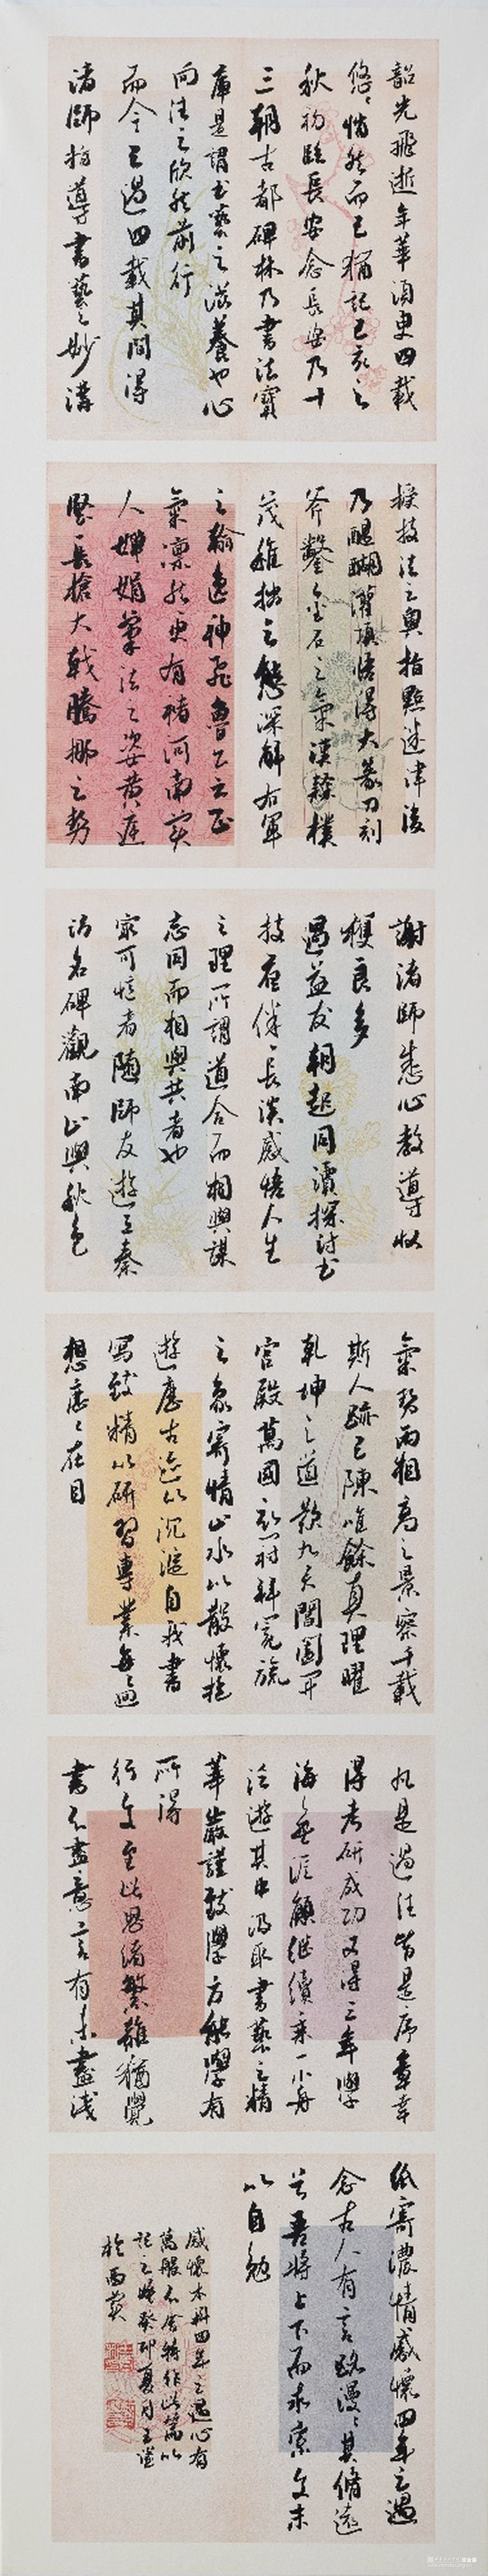 韶光飛逝年華須臾四載
悠悠惜然而已猶記己亥之
秋初臨長安念長安乃十
三朝古都碑林乃書法寶
庫是謂書藝之滋養也心
向往之欣然前行
而今已過四載其間得
諸師指導書藝之妙講
授技法之奧指點迷津後
乃醍醐灌頂悟得大篆刀刻
斧鑿金石之氣漢隸樸
茂雅拙之態深解右軍
之翰逸神飛魯公之正
氣凜然更有褚河南美
人嬋娟筆法之姿黃庭
堅長槍大戟騰挪之勢
謝諸師悉心教導收
穫良多
遇益友朝起同讀探討書
技夜伴長談感悟人生
之理所謂道合而相與謀
志同而相與共者也
最可憶者隨師友遊三秦
訪名碑觀南山與秋色
氣勢兩相高之景察千載
斯人跡已陳唯餘真理曜
乾坤之道嘆九天閶闔開
宮殿萬國衣冠拜冕旒
之象寄情山水以散懷抱
遊歷古迹以沉澱自我書
寫致精以研習專業每每
想應應在目
凡是過往皆是序章幸
得考研成功又得三年學
海無涯願繼續乘一小舟
泛遊其中汲取書藝之精
華嚴謹致學方能學有
所得
行文至此思緒繁雜猶覺
書不盡意言有未盡淺
紙寄濃情感懷四年之遇
念古人有言路漫漫其脩遠
兮吾將上下而求索文末
以自勉
感懷本科四年之遇心有
萬般不舍特作此篇以
記之時癸卯夏月王謐
於西安